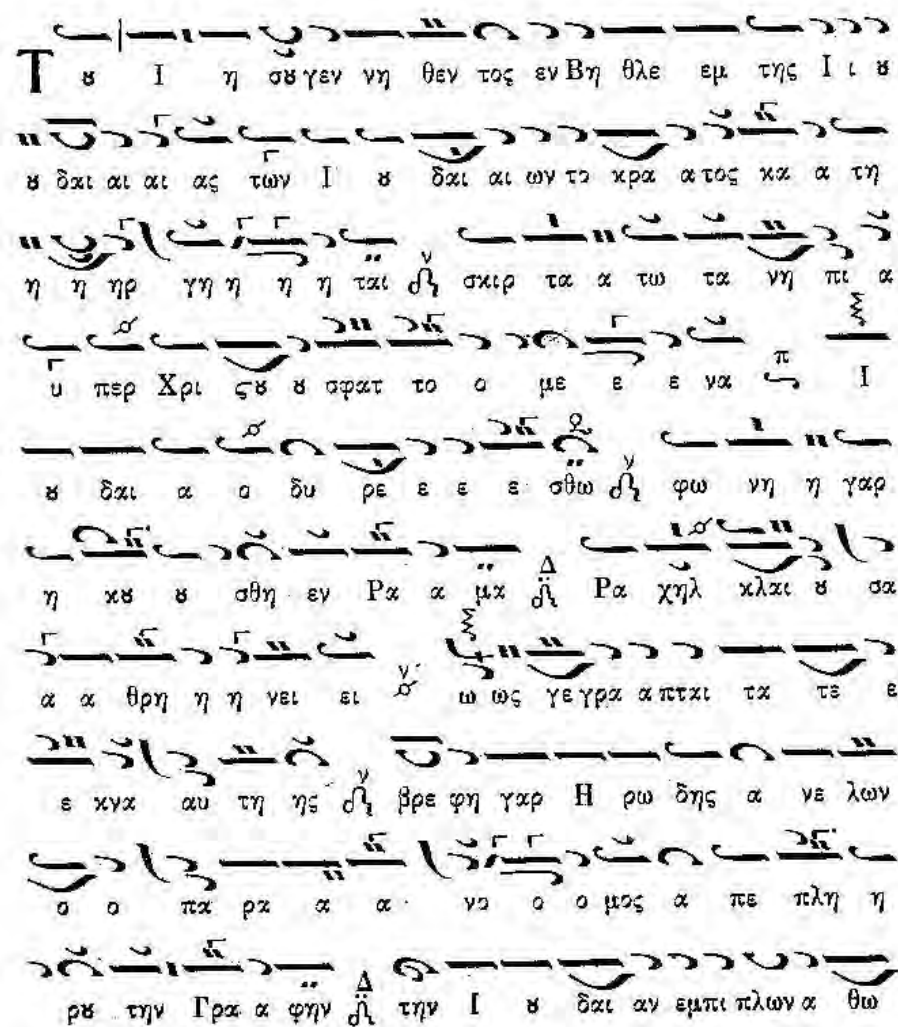 Τ ȣ Ι η σȣ γεν νη θεν τος εν Βη θλε εμ της Ι ι ȣ
ȣ δαι αι αι ας των Ι ȣ δαι αι ων το κρα α τος κα α τη
η η ηρ γη η η η ται ν σκιρ τα α τω τα νη πι α
υ περ Χρι ϛȣ ȣ σφατ το ο με ε ε να π Ι
ȣ δαι α ο δυ ρε ε ε ε σθω ν φω νη η γαρ
η κȣ ȣ σθη εν Ρα α μα Δ Ρα χηλ κλαι ȣ σα
α α θρη η η νει ει ν ω ως γε γρα α πται τα τε ε
ε κνα αυ τη ης ν βρε φη γαρ Η ρω δης α νε λων
ο ο πα ρα α α νο ο ο μος α πε πλη η
ρȣ την Γρα α φην Δ την Ι ȣ δαι αν εμπι πλων α θω